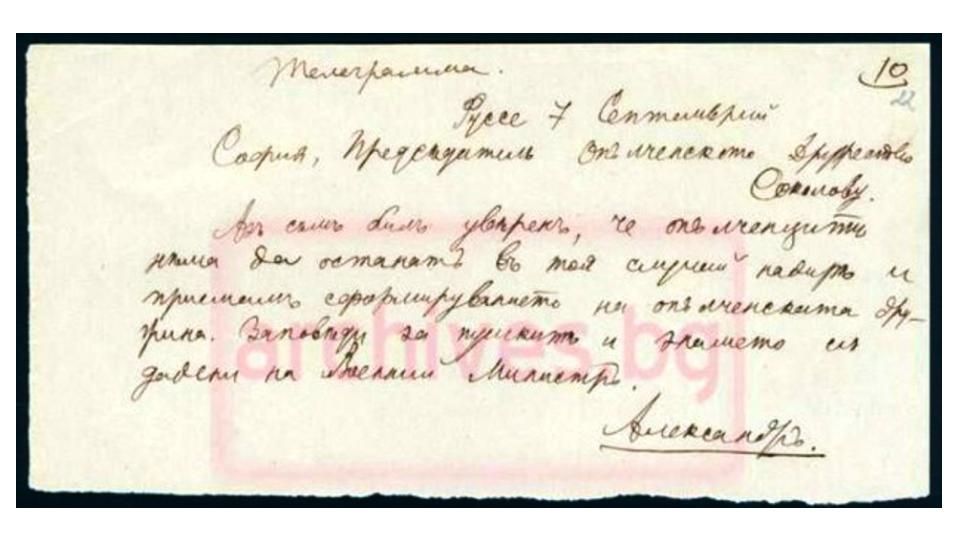 Телеграмма.
10
22
Руссе 7 Септемврий
София, Председатель Опълченското Дружество
Соколову.
Азъ съмъ билъ увѣренъ, че опълченцитѣ
нѣма да останатъ въ тоя случай надирѣ и
приемамъ сформируванието на опълченската дру-
жина. Заповѣди за пушкитѣ и знамето съ
дадени на Военний Министръ.
Александръ.
archives.bg